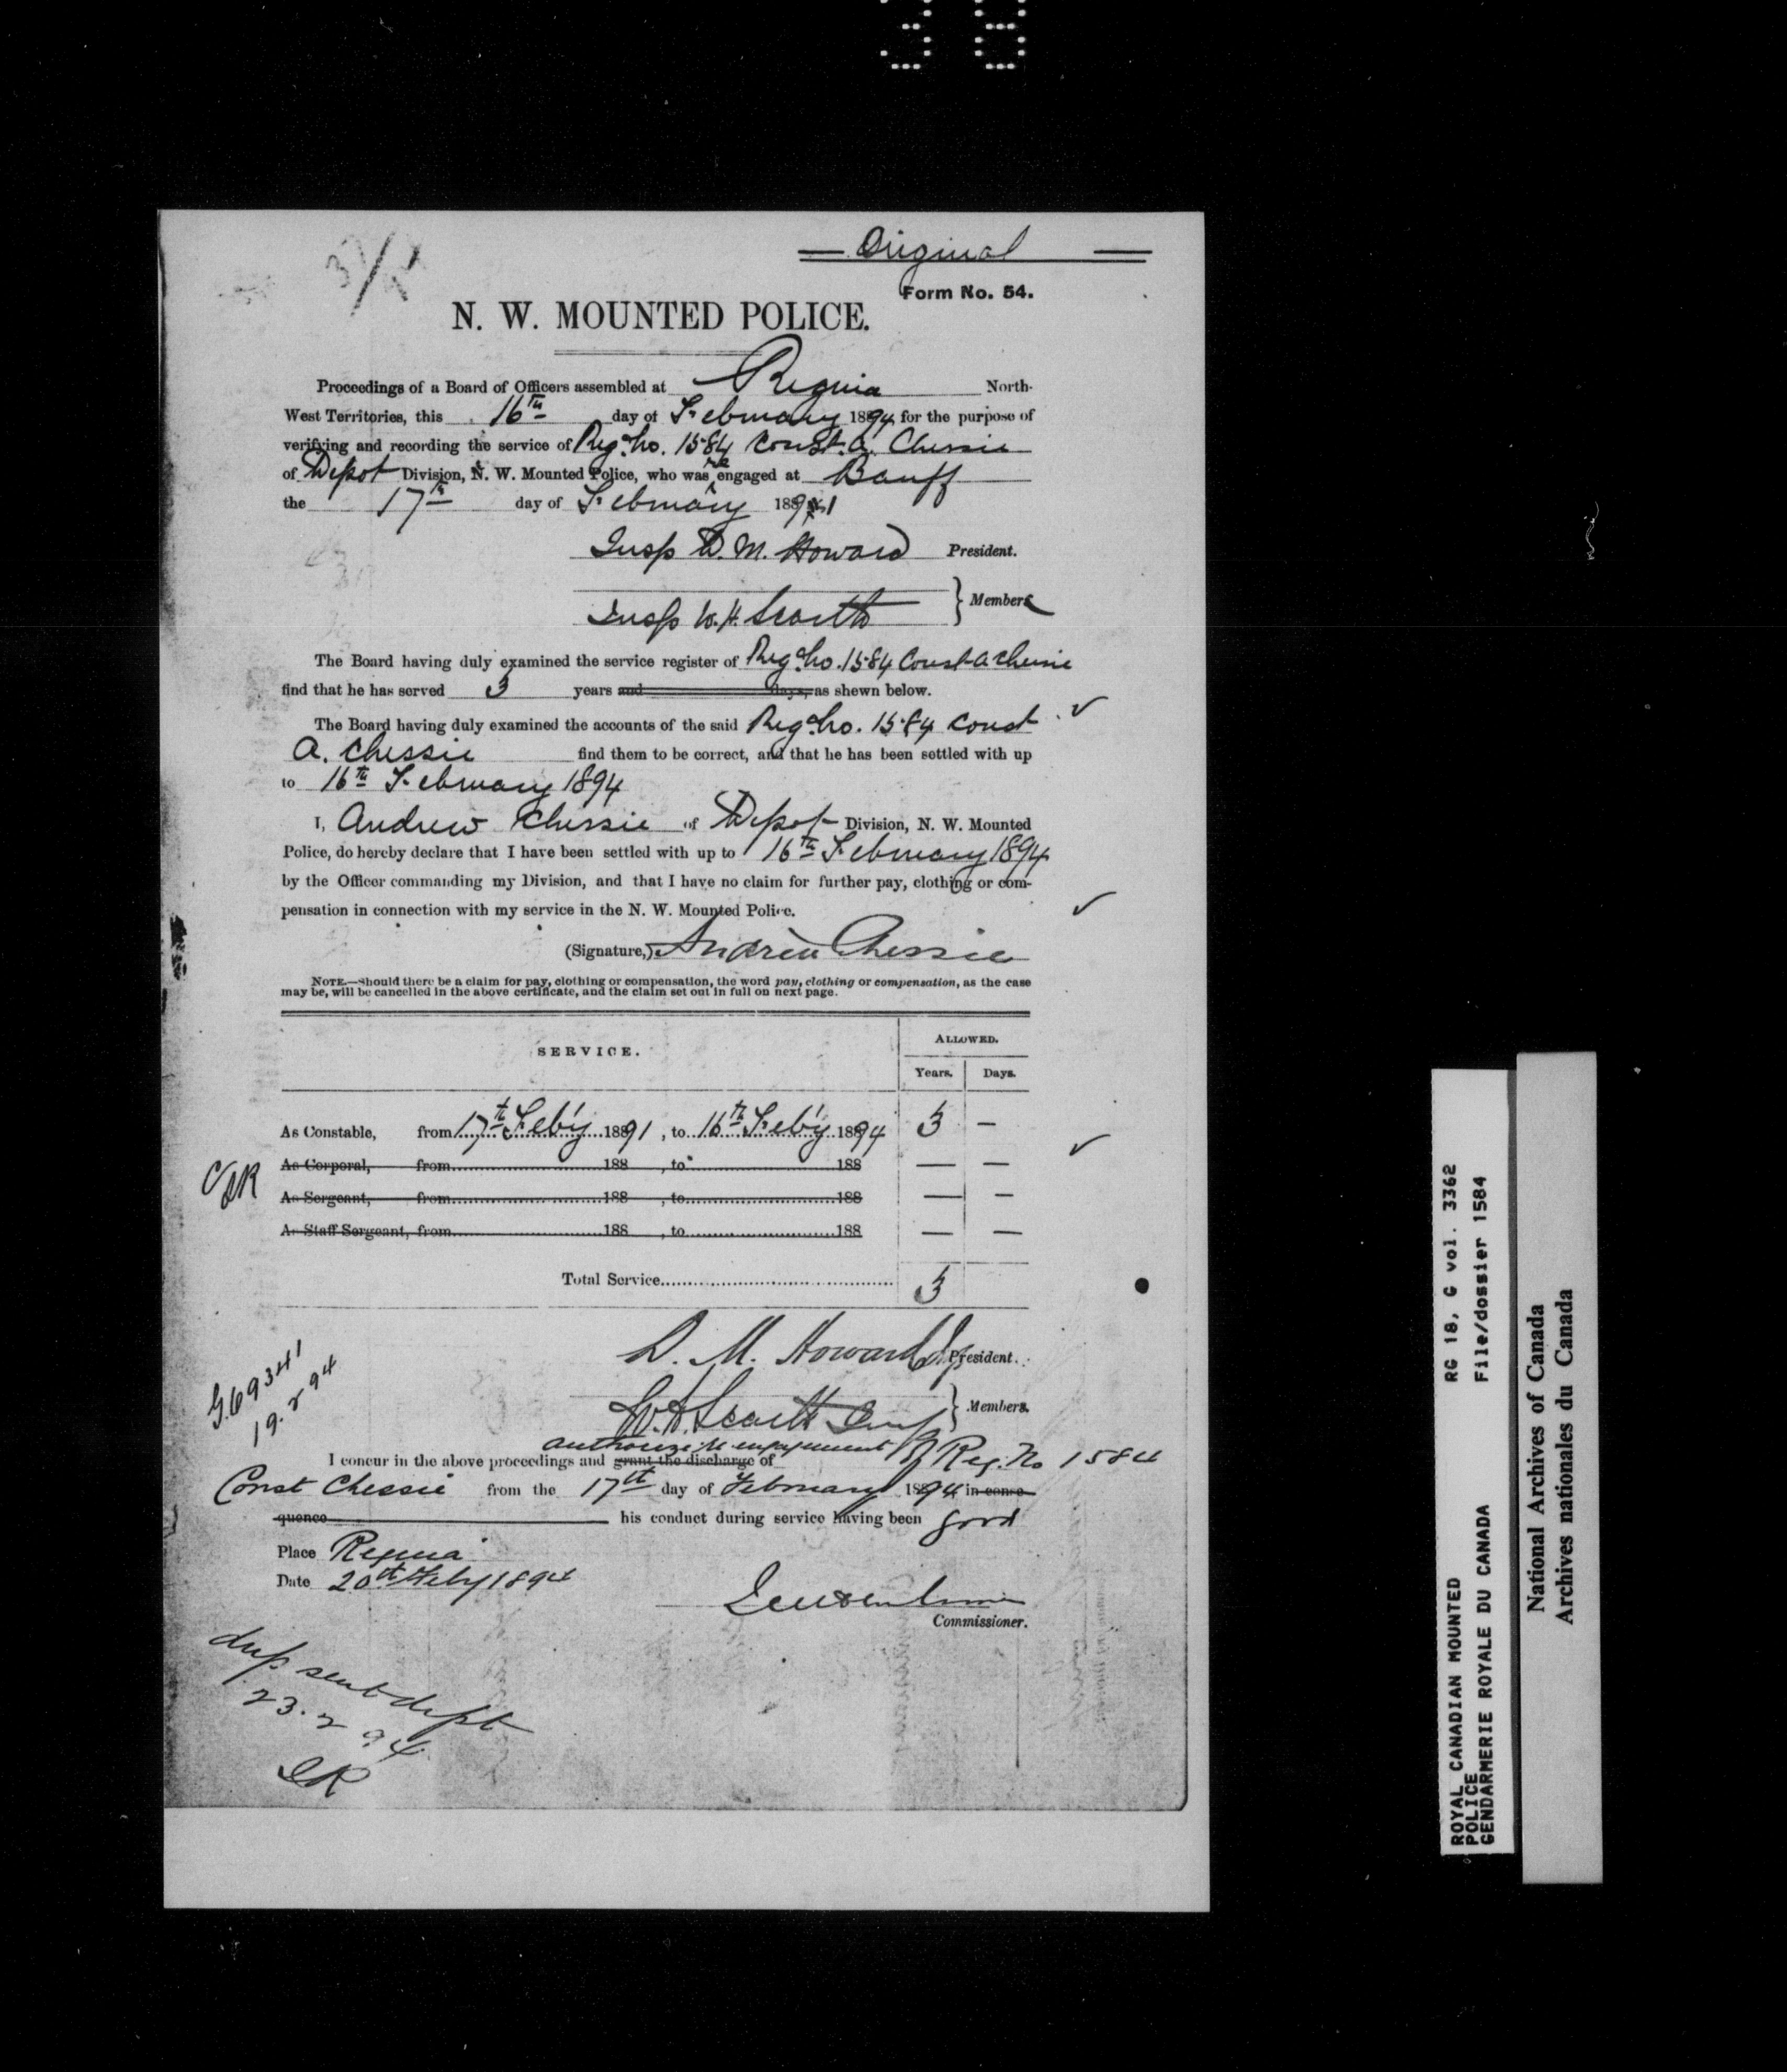 38
Original
Form No. 54.
N. W. MOUNTED POLICE.
Proceedings of a Board of Officers assembled at Regina North-
West Territories, this 16th day of February 1894 for the purpose of
verifying and recording the service of Reg. No. 1584 Const. A. Chessie
of Depot Division, N. W. Mounted Police, who was re engaged at Banff
the 17th day of February 1891
Insp D. M. Howard President.
Insp W. H. Scarth } Members
The Board having duly examined the service register of Reg. No. 1584 Const A Chessie
find that he has served 3 years and days, as shewn below.
The Board having duly examined the accounts of the said Reg. No. 1584 Const
A. Chessie find them to be correct, and that he has been settled with up
to 16th February 1894
I, Andrew Chessie of Depot Division, N. W. Mounted
Police, do hereby declare that I have been settled with up to 16th February 1894
by the Officer commanding my Division, and that I have no claim for further pay, clothing or com-
pensation in connection with my service in the N. W. Mounted Police.
(Signature,) Andrew Chessie
NOTE.—Should there be a claim for pay, clothing or compensation, the word pay, clothing or compensation, as the case
may be, will be cancelled in the above certificate, and the claim set out in full on next page.
SERVICE.
ALLOWED.
Years. Days.
As Constable, from 17th Feb'y 1891, to 16th Feb'y 1894 3 —
As Corporal, from 188 , to 188 — —
As Sergeant, from 188 , to 188 — —
As Staff Sergeant, from 188 , to 188 — —
Total Service 3
D. M. Howard President.
W. H. Scarth Insp } Members.
G69341
19.2.94
authorize re engagement
I concur in the above proceedings and grant the discharge of of Reg. No 1584
Const Chessie from the 17th day of February 1894 in conse-
quence his conduct during service having been good
Place Regina
Date 20th Feby 1894
Commissioner.
dup sent dept
23.2.94
ROYAL CANADIAN MOUNTED RG 18, G vol. 3362
POLICE File/dossier 1584
GENDARMERIE ROYALE DU CANADA
National Archives of Canada
Archives nationales du Canada